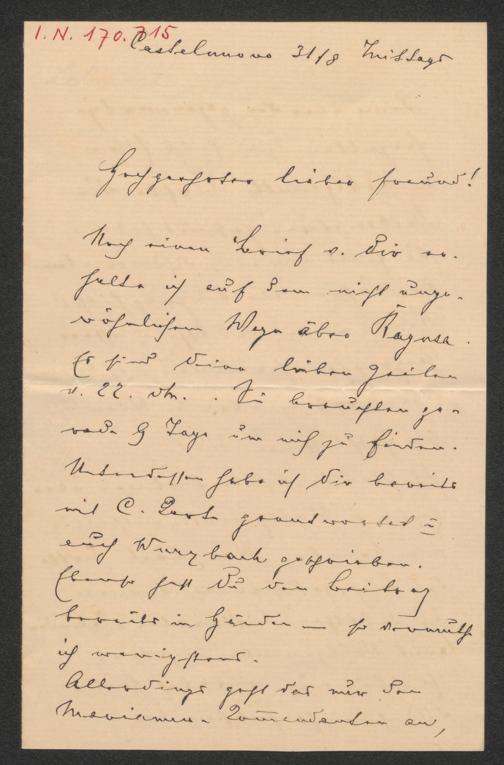 I. N. 170.715
Castelnuovo 31/8 Mittags
Hochgeehrter lieber Freund!
Noch einen Brief v. Dir er-
halte ich auf dem nicht unge-
wöhnlichen Wege über Ragusa.
Es sind Deine lieben Zeilen
v. 22. dM. . Sie brauchten ge-
rade 9 Tage um mich zu finden.
Unterdessen habe ich Dir bereits
mit C. Karte geantwortet u
auch Wurzbach geschrieben.
Ebenso hast Du den Beitrag
bereits in Händen — so vermuthe
ich wenigstens.
Allerdings geht das nur den
Commandanten an,